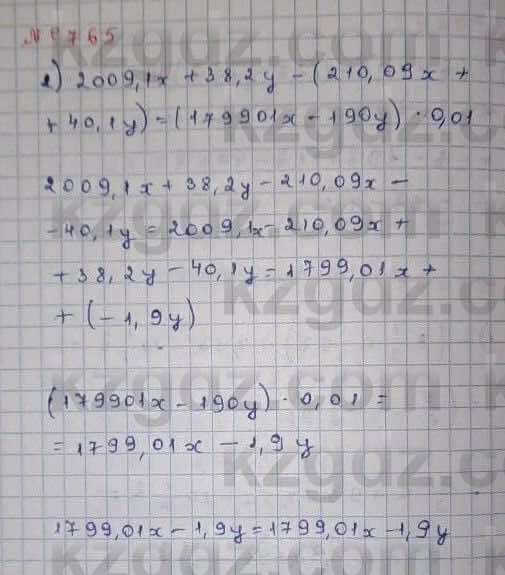 № 765
1) 2009,1x + 38,2y - (210,09x +
+ 40,1y) = (179901x - 190y) · 0,01
2009,1x + 38,2y - 210,09x -
- 40,1y = 2009,1x - 210,09x +
+ 38,2y - 40,1y = 1799,01x +
+ (-1,9y)
(179901x - 190y) · 0,01 =
= 1799,01x - 1,9y
1799,01x - 1,9y = 1799,01x - 1,9y